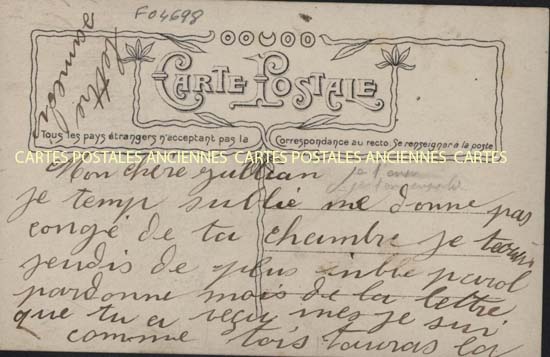 F04698
lettre
samedi
CARTE POSTALE
Tous les pays étrangers n'acceptant pas la Correspondance au recto. Se renseigner à la poste
CARTES POSTALES ANCIENNES CARTES POSTALES ANCIENNES CARTES
Mon chère
je temp sublie me donne pas
congé de ta chambre je
jendis de plus parol
pardonne mois de la lettre
que tu a reçu mes je sui
comme tois tauras la